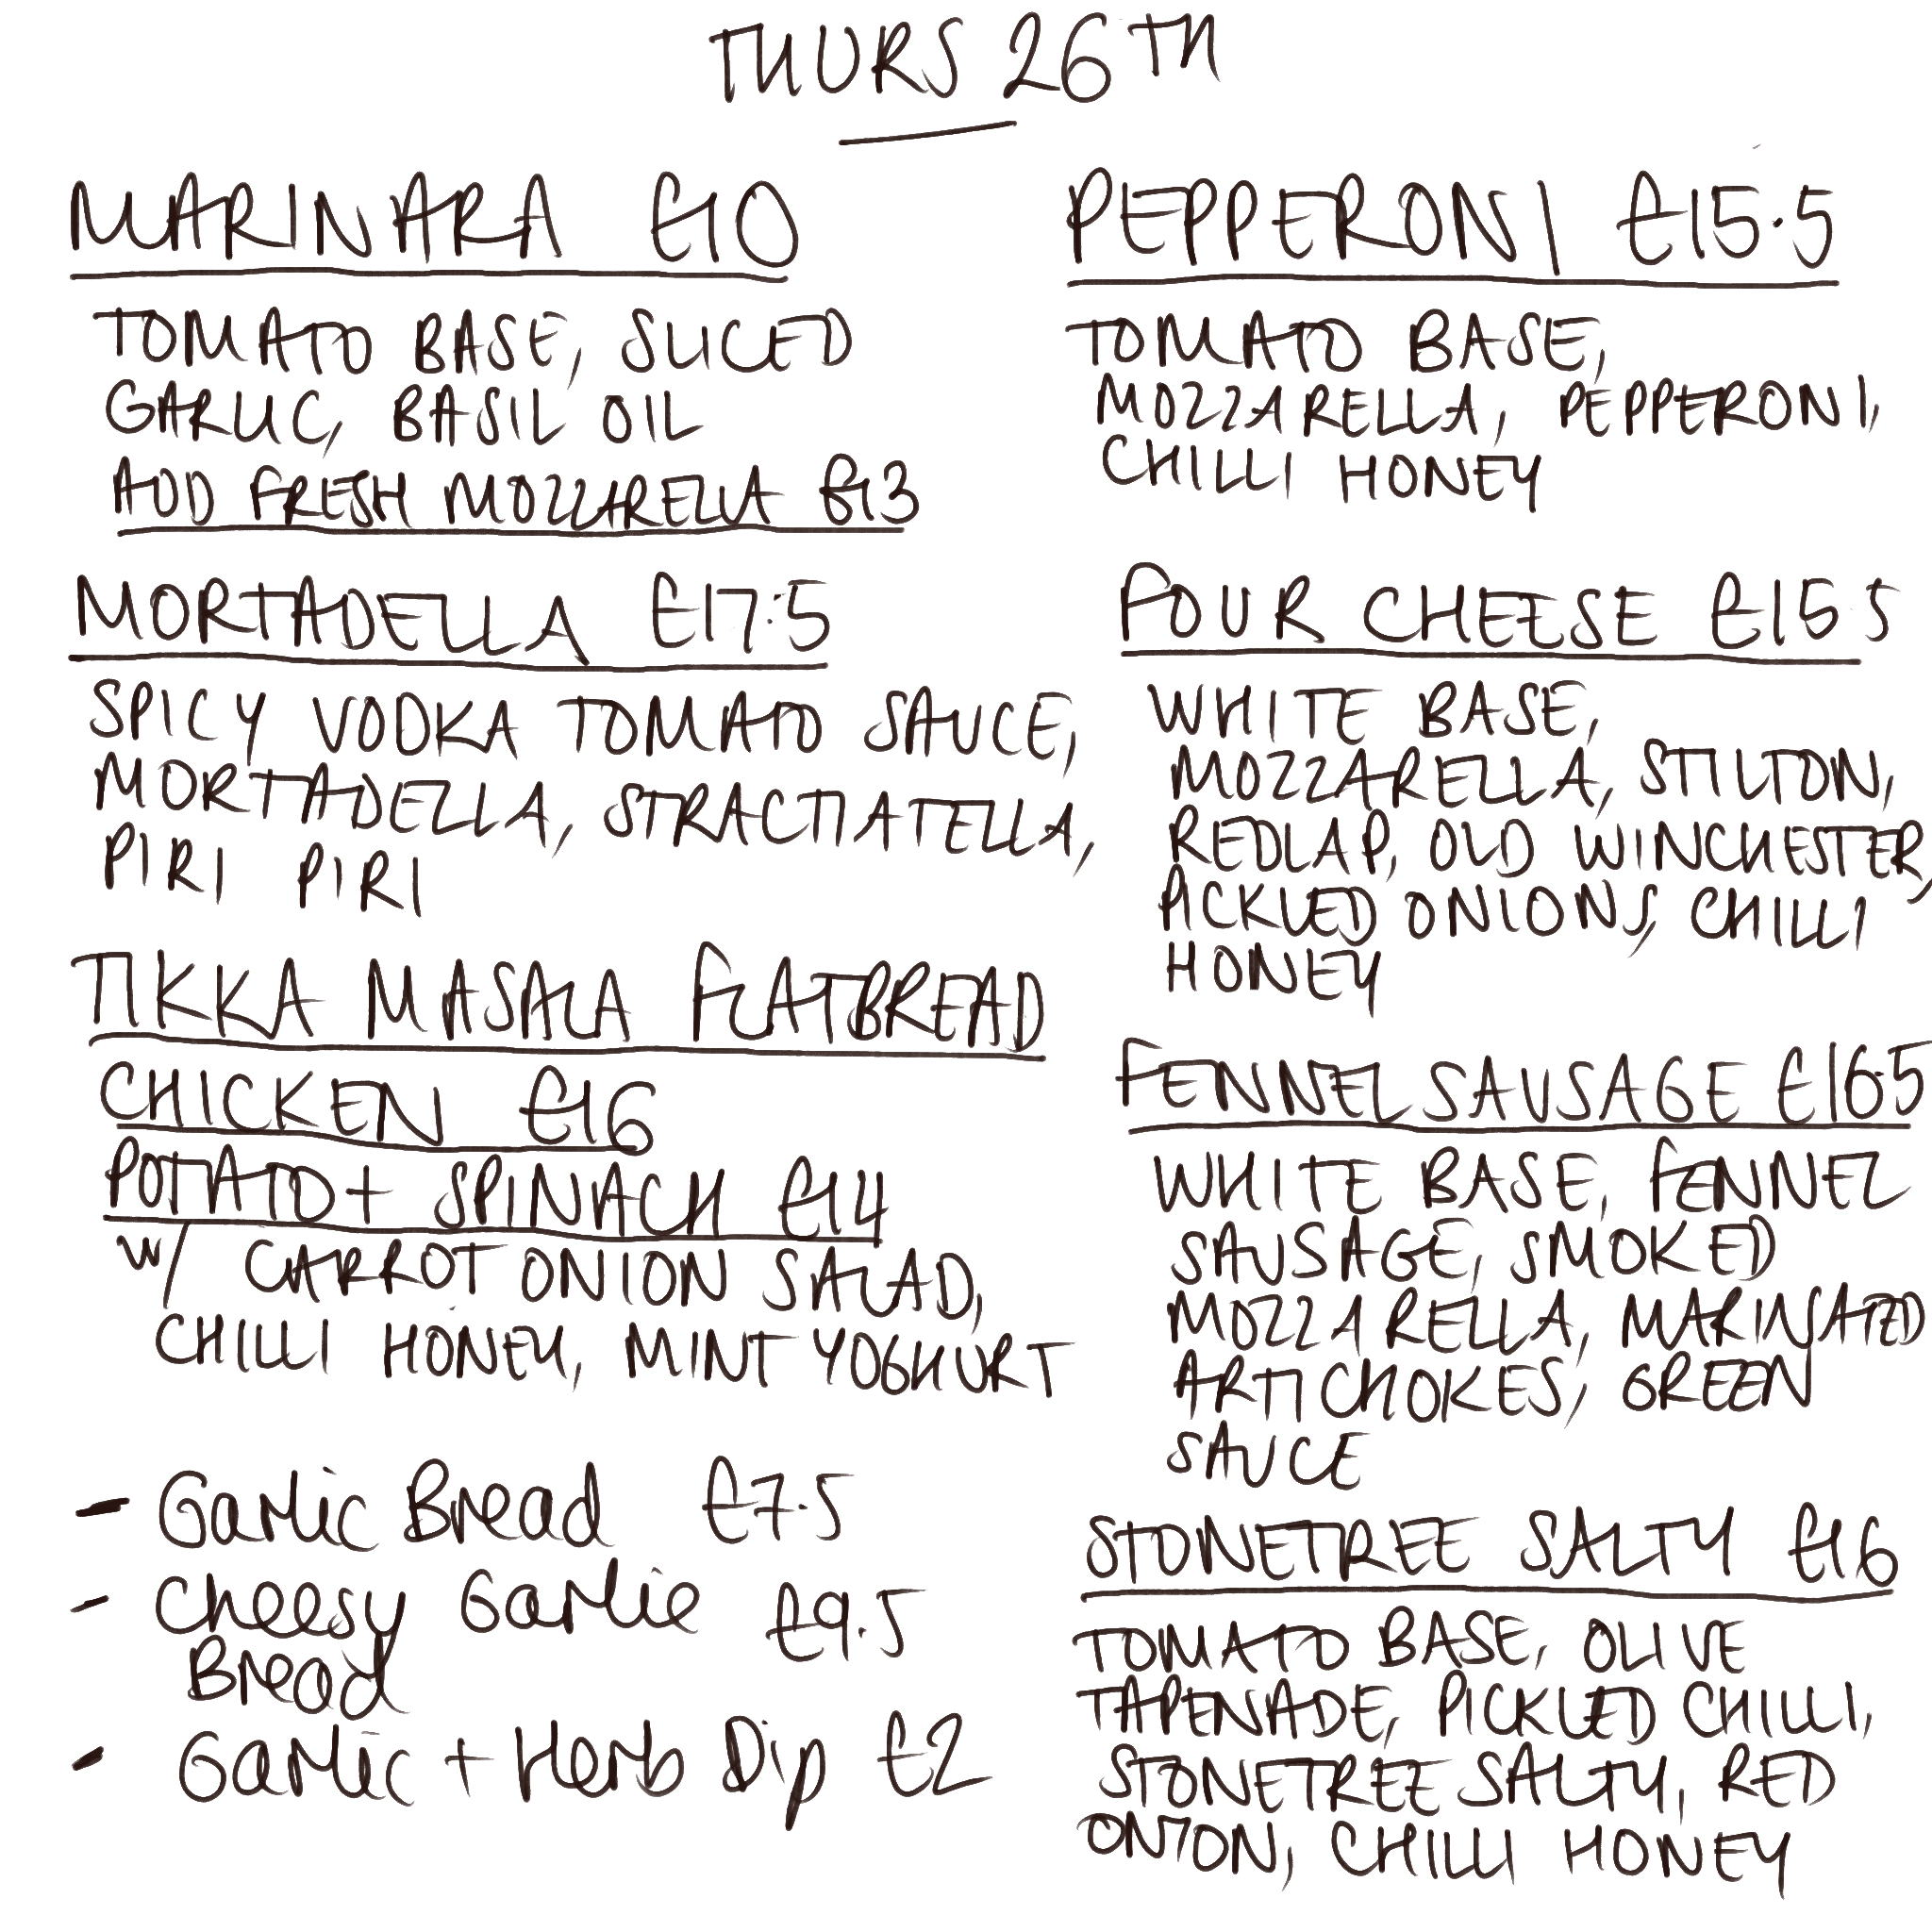 THURS 26TH
MARINARA £10
TOMATO BASE, SLICED
GARLIC, BASIL OIL
ADD FRESH MOZZARELLA £13
MORTADELLA £17.5
SPICY VODKA TOMATO SAUCE,
MORTADELLA, STRACTIATELLA,
PIRI PIRI
TIKKA MASALA FLATBREAD
CHICKEN £16
POTATO + SPINACH £14
W/ CARROT ONION SALAD,
CHILLI HONEY, MINT YOGHURT
- Garlic Bread £7.5
- Cheesy Garlic £9.5
Bread
- Garlic + Herb Dip £2
PEPPERONI £15.5
TOMATO BASE,
MOZZARELLA, PEPPERONI,
CHILLI HONEY
FOUR CHEESE £15.5
WHITE BASE,
MOZZARELLA, STILTON,
REDLAP, OLD WINCHESTER,
PICKLED ONIONS, CHILLI
HONEY
FENNEL SAUSAGE £16.5
WHITE BASE, FENNEL
SAUSAGE, SMOKED
MOZZARELLA, MARINATED
ARTICHOKES, GREEN
SAUCE
STONETREE SALTY £16
TOMATO BASE, OLIVE
TAPENADE, PICKLED CHILLI,
STONETREE SALTY, RED
ONION, CHILLI HONEY